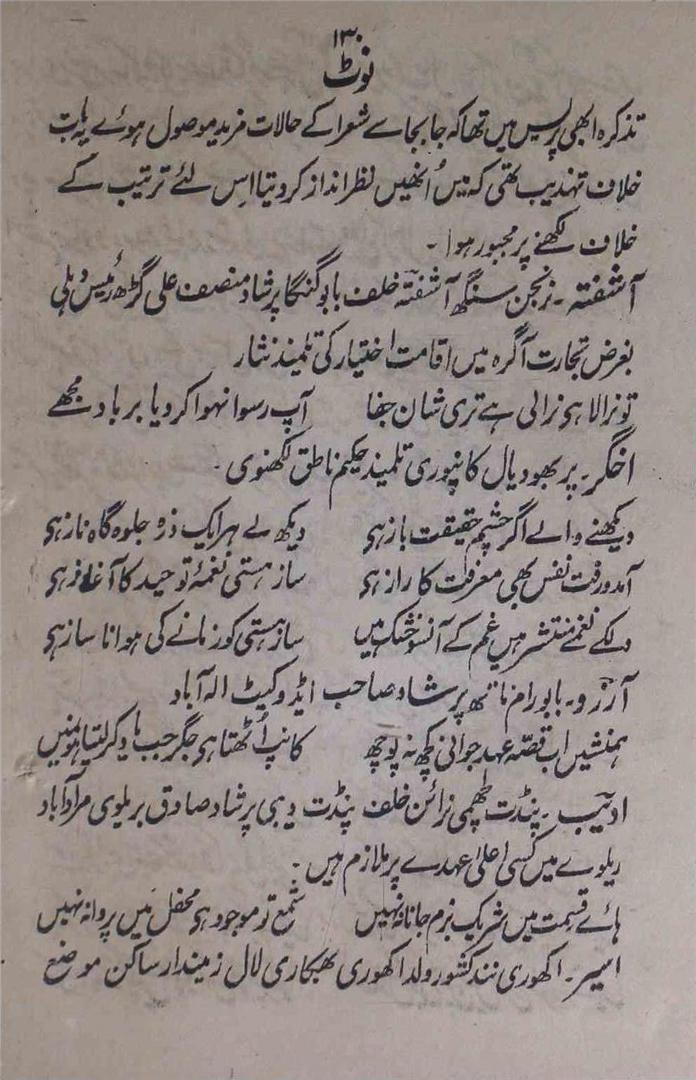 ۱۳۰
نوٹ
تذکرہ ابھی پریس میں تھا کہ جابجا سے شعرا کے حالات مزید موصول ہوئے یہ بات
خلاف تہذیب تھی کہ میں اُنھیں نظر انداز کر دیتا اس لئے ترتیب کے
خلاف لکھنے پر مجبور ہوا۔
آشفتہ۔ نرنجن سنگھ آشفتہ خلف بابو گنگا پرشاد منصف علی گڑھ رئیس دہلی
بغرض تجارت آگرہ میں اقامت اختیار کی تلمیذ نثار
تو نرالا ہی نرالی ہے تری شان جفا آپ رسوا نہوا کر دیا برباد مجھے
اخگر۔ پربھو دیال کانپوری تلمیذ حکیم ناطق لکھنوی۔
دیکھنے والے اگر چشم حقیقت باز ہی دیکھ لے ہر ایک ذرہ جلوہ گاہ ناز ہی
آمد و رفت نفس بھی معرفت کا راز ہی ساز ہستی نغمۂ توحید کا آغاز ہی
دلکے نغمے منتشر ہیں غم کے آنسو خشک ہیں ساز ہستی کو زمانے کی ہوا ناساز ہی
آرزو۔ بابو رام ناتھ پرشاد صاحب ایڈوکیٹ الہ آباد
ہمنشیں اب قصّہ عہد جوانی کچھ نہ پوچھ کانپ اُٹھتا ہی جگر جب یاد کر لیتا ہوں میں
ادیب۔ پنڈت لچھمی نرائن خلف پنڈت دیبی پرشاد صادق بریلوی مرادآباد
ریلوے میں کسی اعلیٰ عہدے پر ملازم ہیں۔
ہائے قسمت میں شریک بزم جانانہ نہیں شمع تو موجود ہی محفل میں پروانہ نہیں
اسیر۔ اکھوری نند کشور ولد اکھوری بھکاری لال زمیندار ساکن موضع